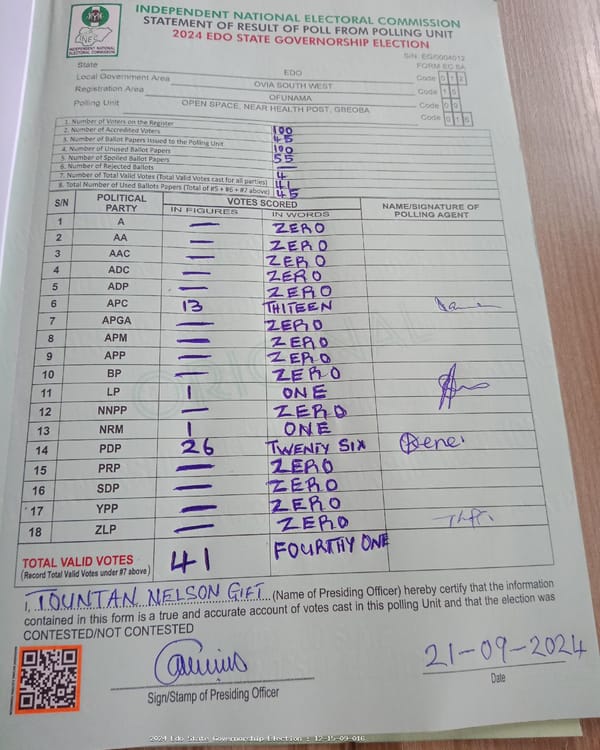 INDEPENDENT NATIONAL ELECTORAL COMMISSION
STATEMENT OF RESULT OF POLL FROM POLLING UNIT
2024 EDO STATE GOVERNORSHIP ELECTION
INEC
INDEPENDENT NATIONAL
ELECTORAL COMMISSION
S/N: EG/0004012
FORM EC 8A
State EDO Code 0 1 2
Local Government Area OVIA SOUTH WEST Code 1 5
Registration Area OFUNAMA Code 0 9
Polling Unit OPEN SPACE, NEAR HEALTH POST, GBEOBA Code 0 1 6
1. Number of Voters on the Register 100
2. Number of Accredited Voters 45
3. Number of Ballot Papers Issued to the Polling Unit 100
4. Number of Unused Ballot Papers 55
5. Number of Spoiled Ballot Papers —
6. Number of Rejected Ballots 4
7. Number of Total Valid Votes (Total Valid Votes cast for all parties) 41
8. Total Number of Used Ballots Papers (Total of #5 + #6 + #7 above) 45
S/N POLITICAL PARTY VOTES SCORED NAME/SIGNATURE OF POLLING AGENT
IN FIGURES IN WORDS
1 A — ZERO
2 AA — ZERO
3 AAC — ZERO
4 ADC — ZERO
5 ADP — ZERO
6 APC 13 THITEEN
7 APGA — ZERO
8 APM — ZERO
9 APP — ZERO
10 BP — ZERO
11 LP 1 ONE
12 NNPP — ZERO
13 NRM 1 ONE
14 PDP 26 TWENTY SIX
15 PRP — ZERO
16 SDP — ZERO
17 YPP — ZERO
18 ZLP — ZERO
TOTAL VALID VOTES 41 FOURTHY ONE
(Record Total Valid Votes under #7 above)
I, TOUNTAN NELSON GIFT (Name of Presiding Officer) hereby certify that the information
contained in this form is a true and accurate account of votes cast in this polling Unit and that the election was
CONTESTED/NOT CONTESTED
21-09-2024
Sign/Stamp of Presiding Officer Date
ORIGINAL
2024 Edo State Governorship Election : 12-15-09-016